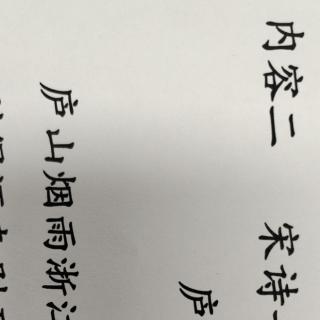 内容二 宋诗
庐
庐山烟雨浙江